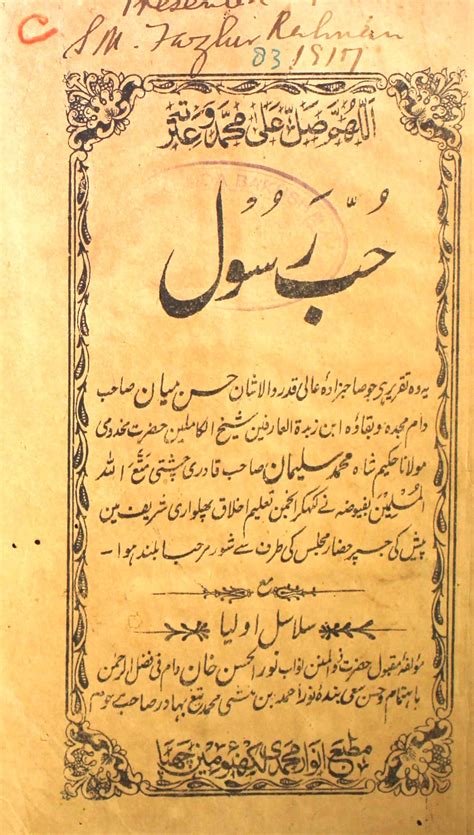 Presented
S.M. Fazlur Rahman
C
83 1917
اللہم صل علی محمد وعترتہ
حُبِّ رَسُوْل
یہ وہ تقریر ہی جو صاحبزادہ عالی قدر والا شان حسن میان صاحب
دام مجدہ وبقاؤہ ابن زبدۃ العارفین شیخ الکاملین حضرت مخدومی
مولانا حکیم شاہ محمد سلیمان صاحب قادری چشتی متع اللہ
المسلمین بفیوضہ نے لکھکر انجمن تعلیم اخلاق پھلواری شریف مین
پیش کی جسپر حضار مجلس کی طرف سے شور مرحبا بلند ہوا۔
مع
سلاسل اولیا
مؤلفہ مقبول حضرت ذوالمنن نواب نور الحسن خان دام فی فضل الرحمن
باہتمام وحسن سعی بندہ نور احمد بن منشی محمد تیغ بہادر صاحب مرحوم
مطبع انوار محمدی لکھنؤ مین چھپا